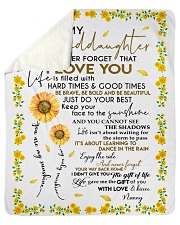 MY
Granddaughter
NEVER FORGET THAT
I LOVE YOU
life is filled with
HARD TIMES & GOOD TIMES
BE BRAVE, BE BOLD AND BE BEAUTIFUL
JUST DO YOUR BEST
Keep your
face to the sunshine
AND YOU CANNOT SEE
THE SHADOWS
life isn't about waiting for
the storm to pass
IT'S ABOUT LEARNING TO
DANCE IN THE RAIN
Enjoy the ride
And never forget
YOUR WAY BACK HOME
I DIDN'T GIVE YOU the gift of life
life gave me the GIFT OF YOU
WITH LOVE & kisses
Nanny
you are my sunshine